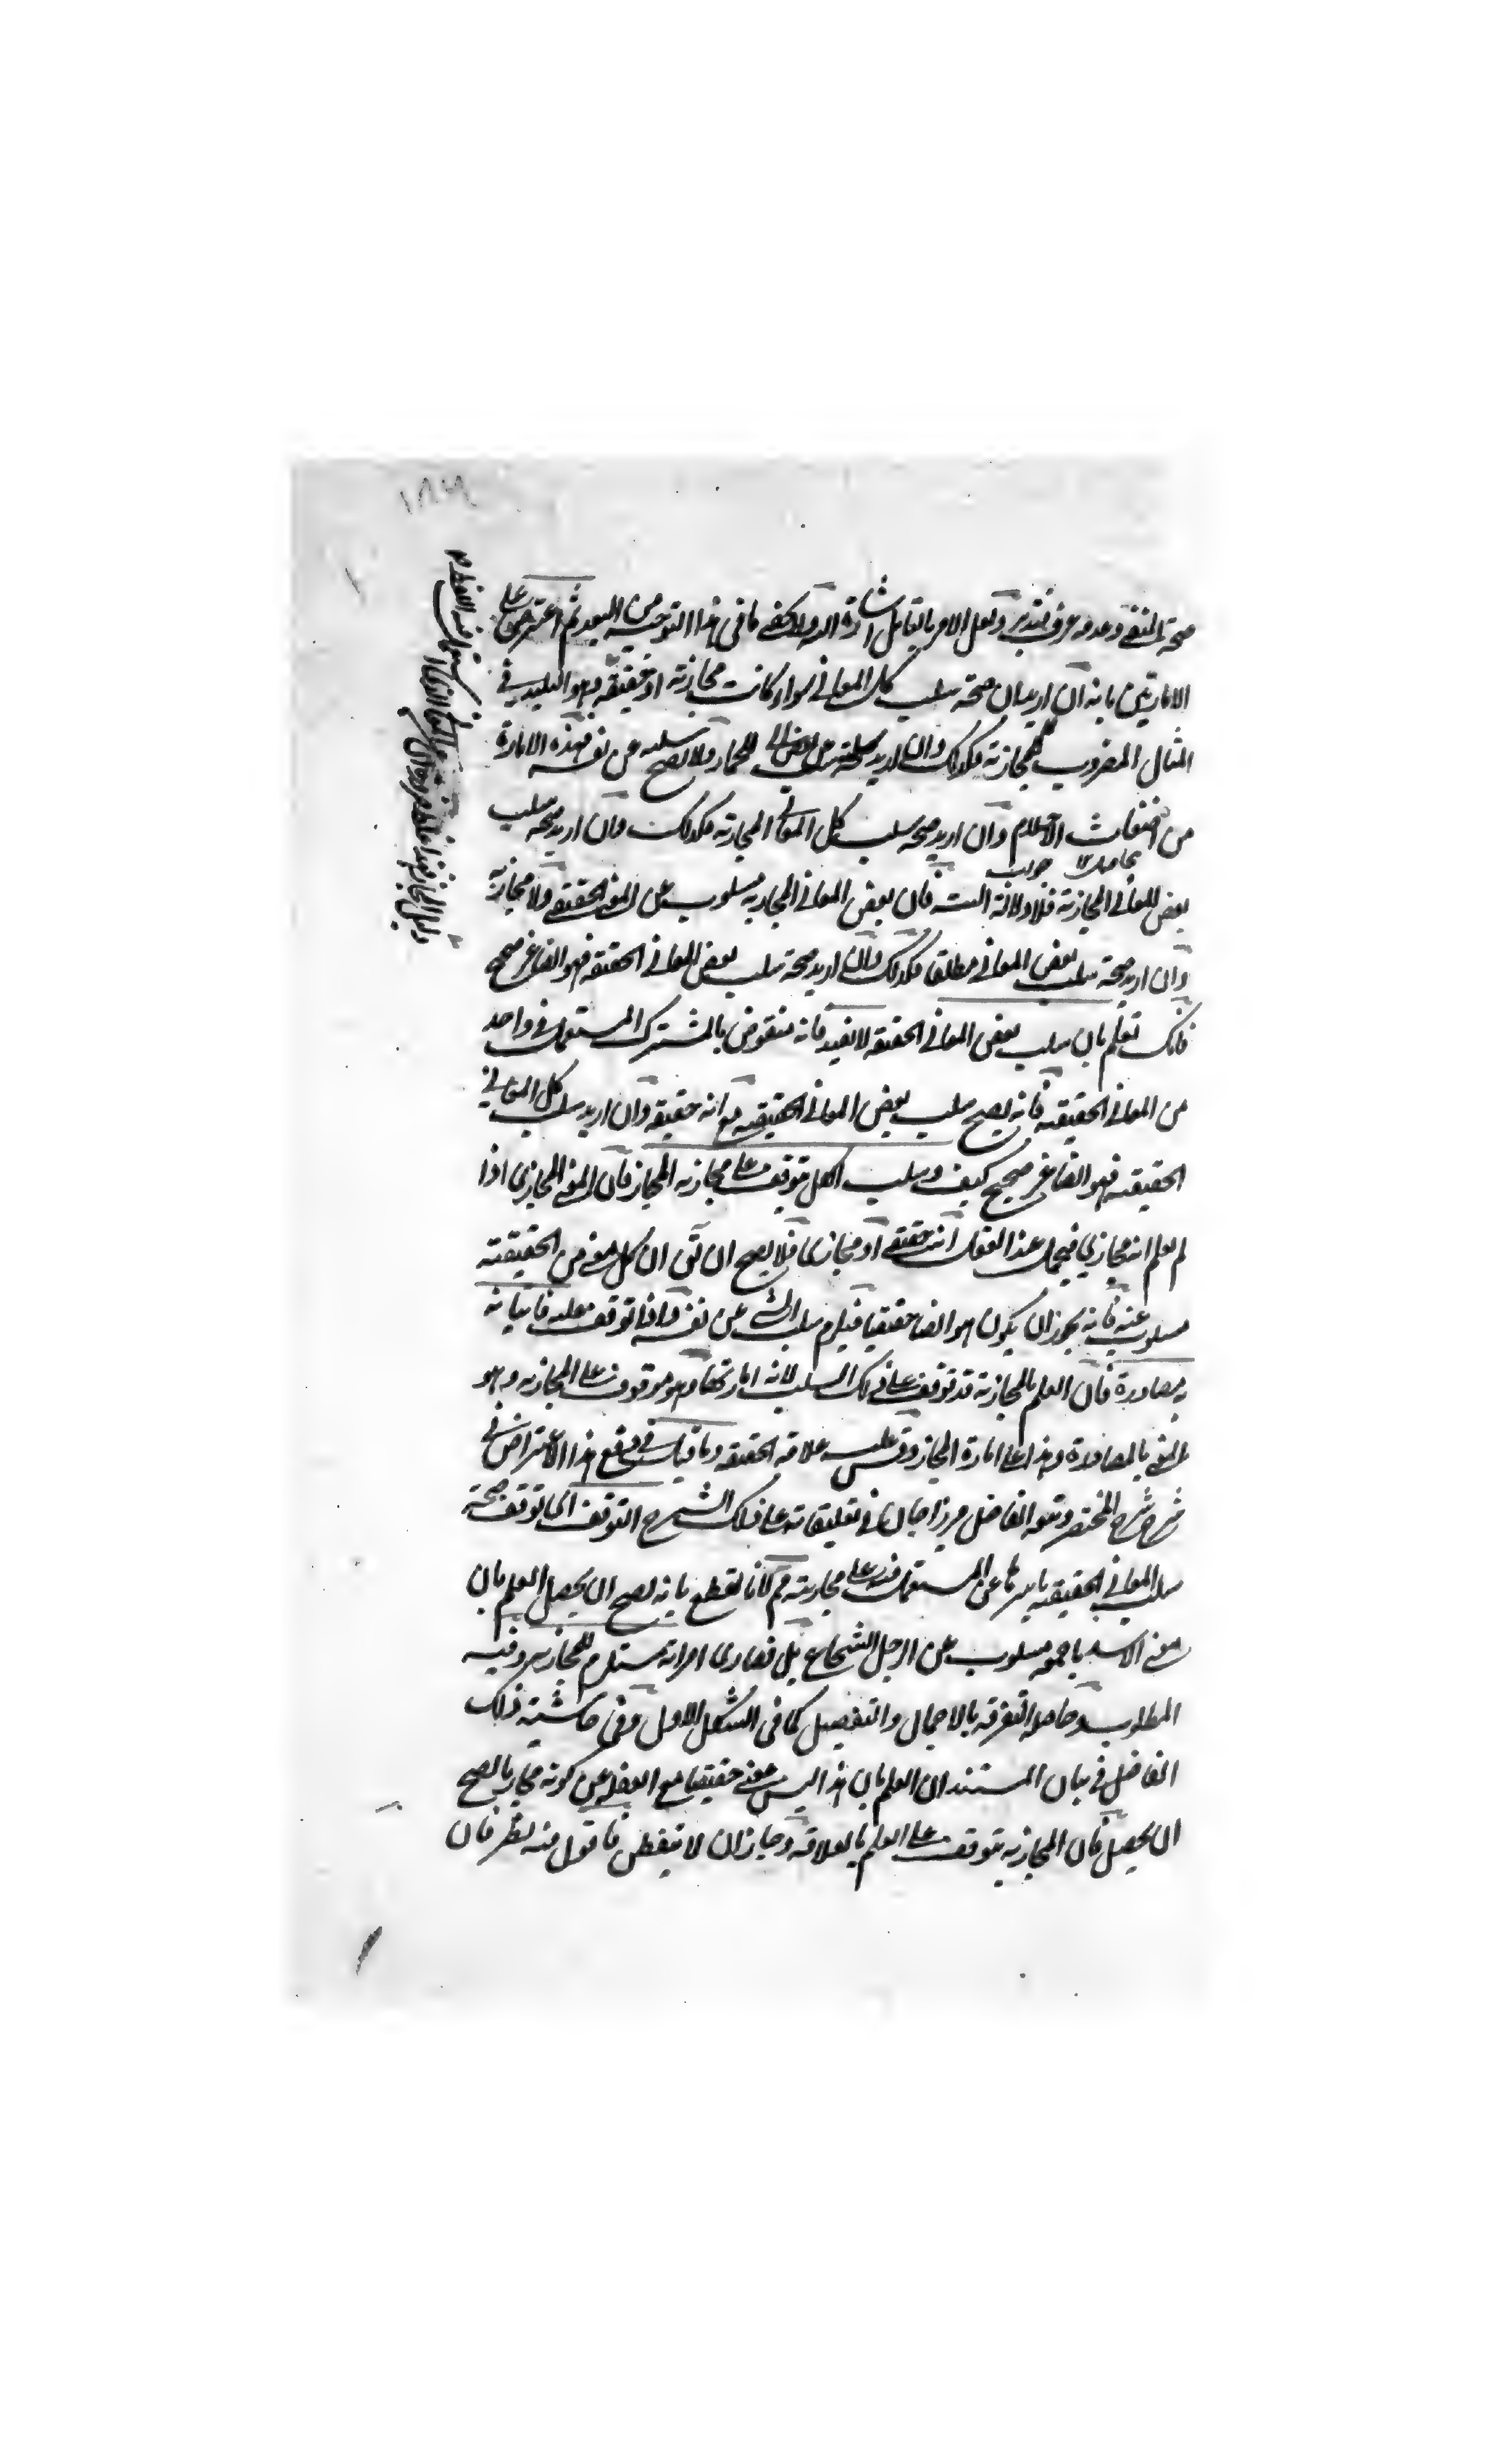 صحة النفي وعدمه عرف فتدبر ولعل الامر بالتامل اشارة اليه ولا يخفى ما في هذا التوجيه من البعد ثم اعترض على
الامارتين بانه ان اريد ان صحة سلب كل المعاني سواء كانت مجازية او حقيقية وهو البليد في
المثال المضروب للمجازية فكذلك وان اريد صحة سلب بعض للحمار ولا يصح سلبه عن نفسه فهذه الامارة
من اضغاث الاحلام وان اريد صحة سلب كل المعاني المجازية فكذلك وان اريد صحة سلب
بعض المعاني المجازية فلا دلالة البتة فان بعض المعاني المجازية مسلوب عن المعنى الحقيقي ولا مجازية
وان اريد صحة سلب بعض المعاني مطلقا فكذلك وان اريد صحة سلب بعض المعاني الحقيقية فهو ايضا غير صحيح
فانك تعلم بان سلب بعض المعاني الحقيقية لا يفيد فانه منقوض بالمشترك المستعمل في واحد
من المعاني الحقيقية فانه يصح سلب بعض المعاني الحقيقية مع انه حقيقة وان اريد سلب كل المعاني
الحقيقية فهو ايضا غير صحيح كيف وسلب الكل يتوقف على مجازية المجاز فان المعنى المجازي اذا
لم يعلم انه مجازي فيحتمل عند العقل انه حقيقي او مجازي فلا يصح ان يق ان كل معنى من الحقيقية
مسلوب عنه فانه يجوز ان يكون هو ايضا حقيقيا فيلزم سلب الشيء عن نفسه واذا توقف عليه فاثباته
به مصادرة فان العلم بالمجازية قد توقف على ذلك السلب لانه امارتها وهو موقوف على المجازية وهو
المعني بالمصادرة وهذا على امارة المجاز وقس عليه علامة الحقيقة وما قيل في دفع هذا الاعتراض في
شرح شرح المختصر وتبعه الفاضل ميرزا جان في تعليقاته على ذلك الشرح التوقف اي توقف صحة
سلب المعاني الحقيقية باسرها عن المستعمل فيه على مجازيته مم لانا نقطع بانه يصح ان يحصل العلم بان
معنى الاسد باجمعه مسلوب عن الرجل الشجاع بل قصارى امره انه مستلزم للمجازية وفيه
المطلوب وحاصله التفرقة بالاجمال والتفصيل كما في الشكل الاول وفي حاشية ذلك
الفاضل في بيان المستند ان العلم بان هذا ليس معنى حقيقيا مع الغفلة عن كونه مجازيا يصح
ان يحصل فان المجازية يتوقف على العلم بالعلاقة وجاز ان لا يتفطن فاقول فيه نظر فان